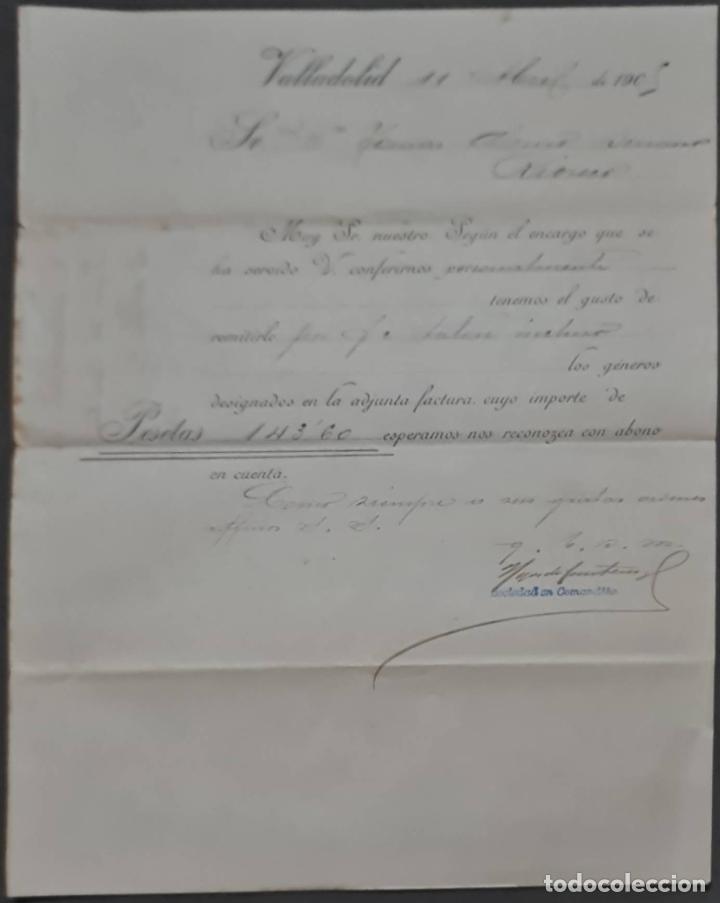 Valladolid 11 Abril de 1905
Sr
Muy Sr. nuestro: Según el encargo que se
ha servido V. conferirnos personalmente
tenemos el gusto de
remitirle por talon incluso
los géneros
designados en la adjunta factura, cuyo importe de
Pesetas 143'60 esperamos nos reconozca con abono
en cuenta.
Como siempre a sus gratas ordenes
affmos S. S.
q. b. s. m.
Sociedad en Comandita
todocoleccion
todocoleccion.net